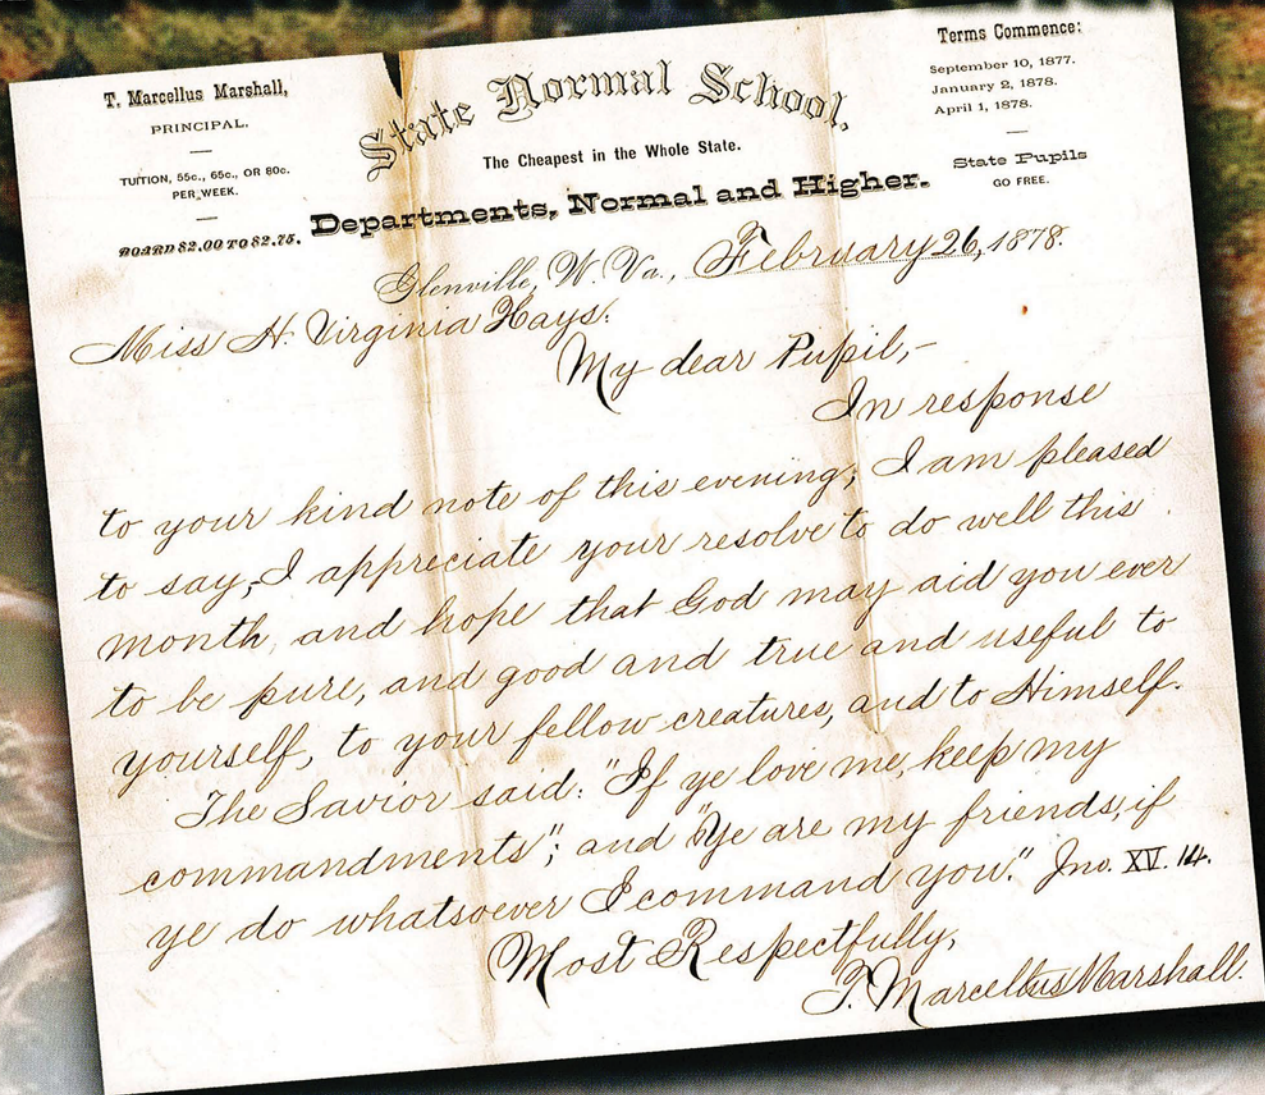 T. Marcellus Marshall,
PRINCIPAL.
TUITION, 55c., 65c., OR 80c.
PER WEEK.
BOARD $2.00 TO $2.75.
State Normal School.
The Cheapest in the Whole State.
Departments, Normal and Higher.
Terms Commence:
September 10, 1877.
January 2, 1878.
April 1, 1878.
State Pupils
GO FREE.
Glenville, W. Va., February 26, 1878.
Miss H. Virginia Hays:
My dear Pupil,—
In response
to your kind note of this evening; I am pleased
to say, I appreciate your resolve to do well this
month, and hope that God may aid you ever
to be pure, and good and true and useful to
yourself, to your fellow creatures, and to Himself.
The Savior said: "If ye love me, keep my
commandments"; and "Ye are my friends, if
ye do whatsoever I command you." Jno. XV. 14.
Most Respectfully,
T. Marcellus Marshall.